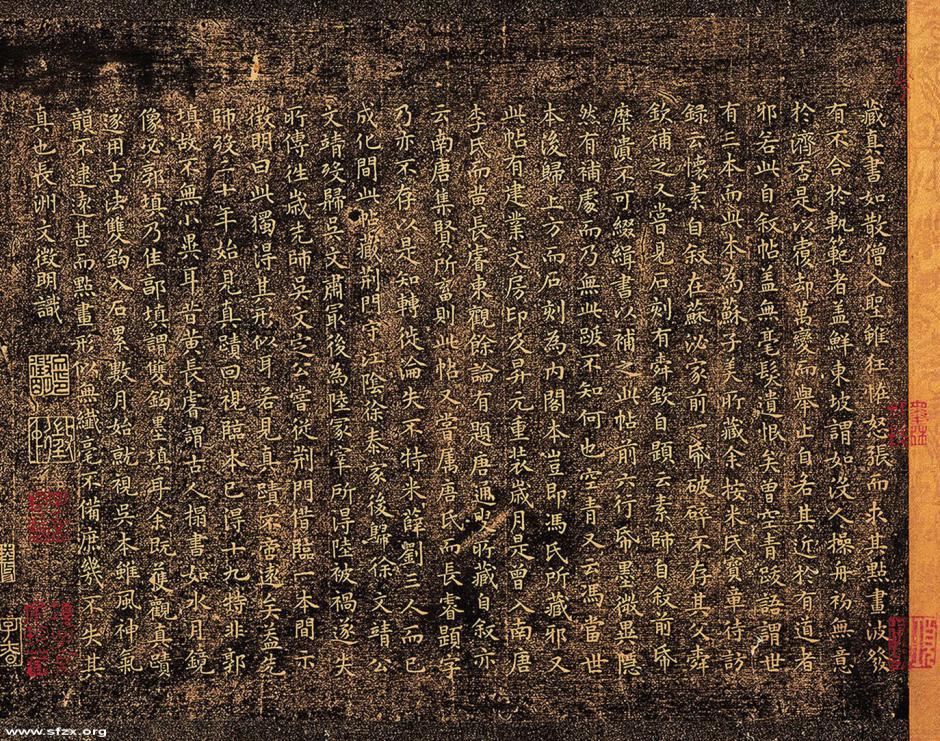 藏真書如散僧入聖雖狂怪怒張而求其點畫波發
有不合於軌範者蓋鮮東坡謂如沒人操舟初無意
於濟否是以覆却萬變而舉止自若其近於有道者
邪若此自叙帖蓋無毫髮遺恨矣曾空青跋語謂世
有三本而此本為蘇子美所藏余按米氏寶章待訪
録云懷素自叙在蘇泌家前一帋破碎不存其父舜
欽補之又嘗見石刻有舜欽自題云素師自叙前帋
糜潰不可綴緝書以補之此帖前六行帋墨微異隱
然有補處而乃無此跋不知何也空青又云馮當世
本後歸上方而石刻為内閣本豈即馮氏所藏邪又
此帖有建業文房印及昇元重裝歲月是曾入南唐
李氏而黃長睿東觀餘論有題唐通叟所藏自叙亦
云南唐集賢所畜則此帖又嘗屬唐氏而長睿題字
乃亦不存以是知轉徙淪失不特米薛劉三人而已
成化間此帖藏荊門守江陰徐泰家後歸徐文靖公
文靖歿歸吳文肅最後為陸冢宰所得陸被禍遂失
所傳往歲先師吳文定公嘗從荊門借臨一本間示
徵明曰此獨得其形似耳若見真蹟不啻遠矣蓋先
師歿二十年始見真蹟回視臨本已得十九特非郭
填故不無小異耳昔黃長睿謂古人搨書如水月鏡
像必郭填乃佳郭填謂雙鈎墨填耳余既獲觀真蹟
遂用古法雙鈎入石累數月始就視吳本雖風神氣
韻不逮遠甚而點畫形似無纖毫不備庶幾不失其
真也長洲文徵明識
www.sfzx.org